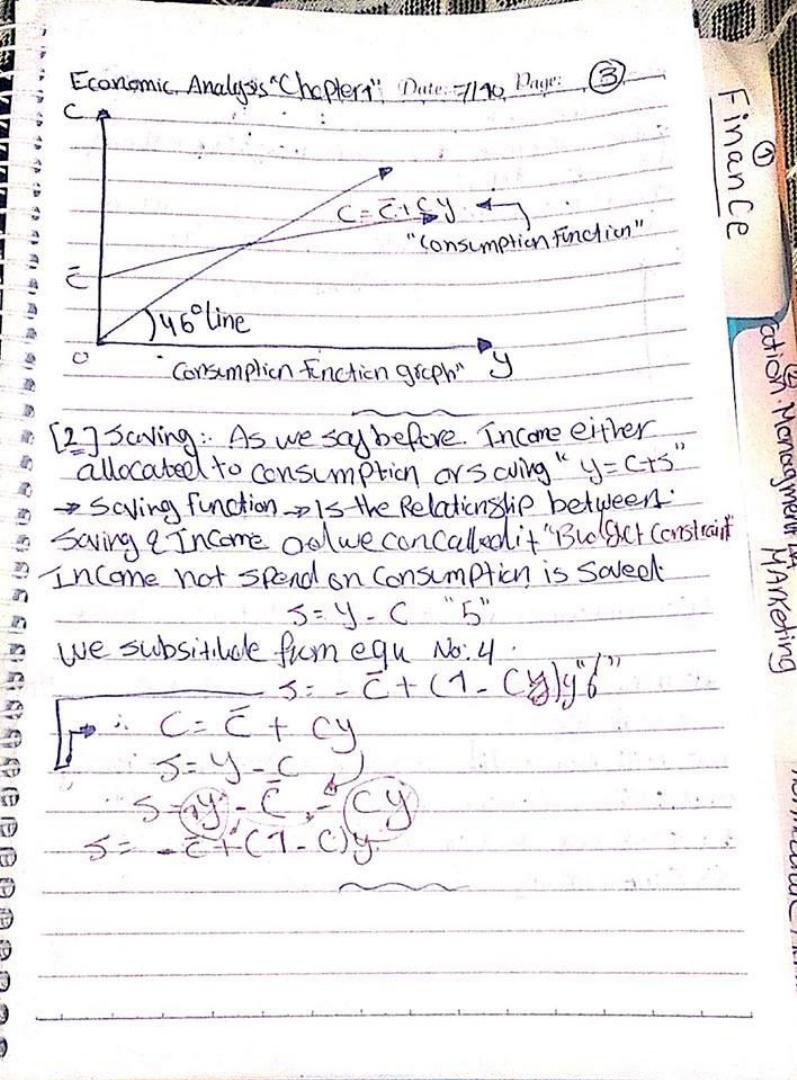 Economic Analysis "Chapter1" Date: 7/10 Page: ③
C
C = C̄ + Cy
"Consumption Function"
C̄
45° line
O
"Consumption function graph" y
[2] Saving:. As we say before. Income either
allocated to consumption or saving " y = C+S"
→ Saving function → Is the Relationship between:
Saving & Income we can called it "Budget Constraint"
Income not spend on Consumption is Saved.
S = y - C "5"
we subsititude from equ No: 4.
S = - C̄ + (1 - C) y "6"
∴ C = C̄ + Cy
S = y - C
S = y - C̄ - Cy
S = - C̄ + (1 - C) y
① Finance
② ation. Managment
Marketing